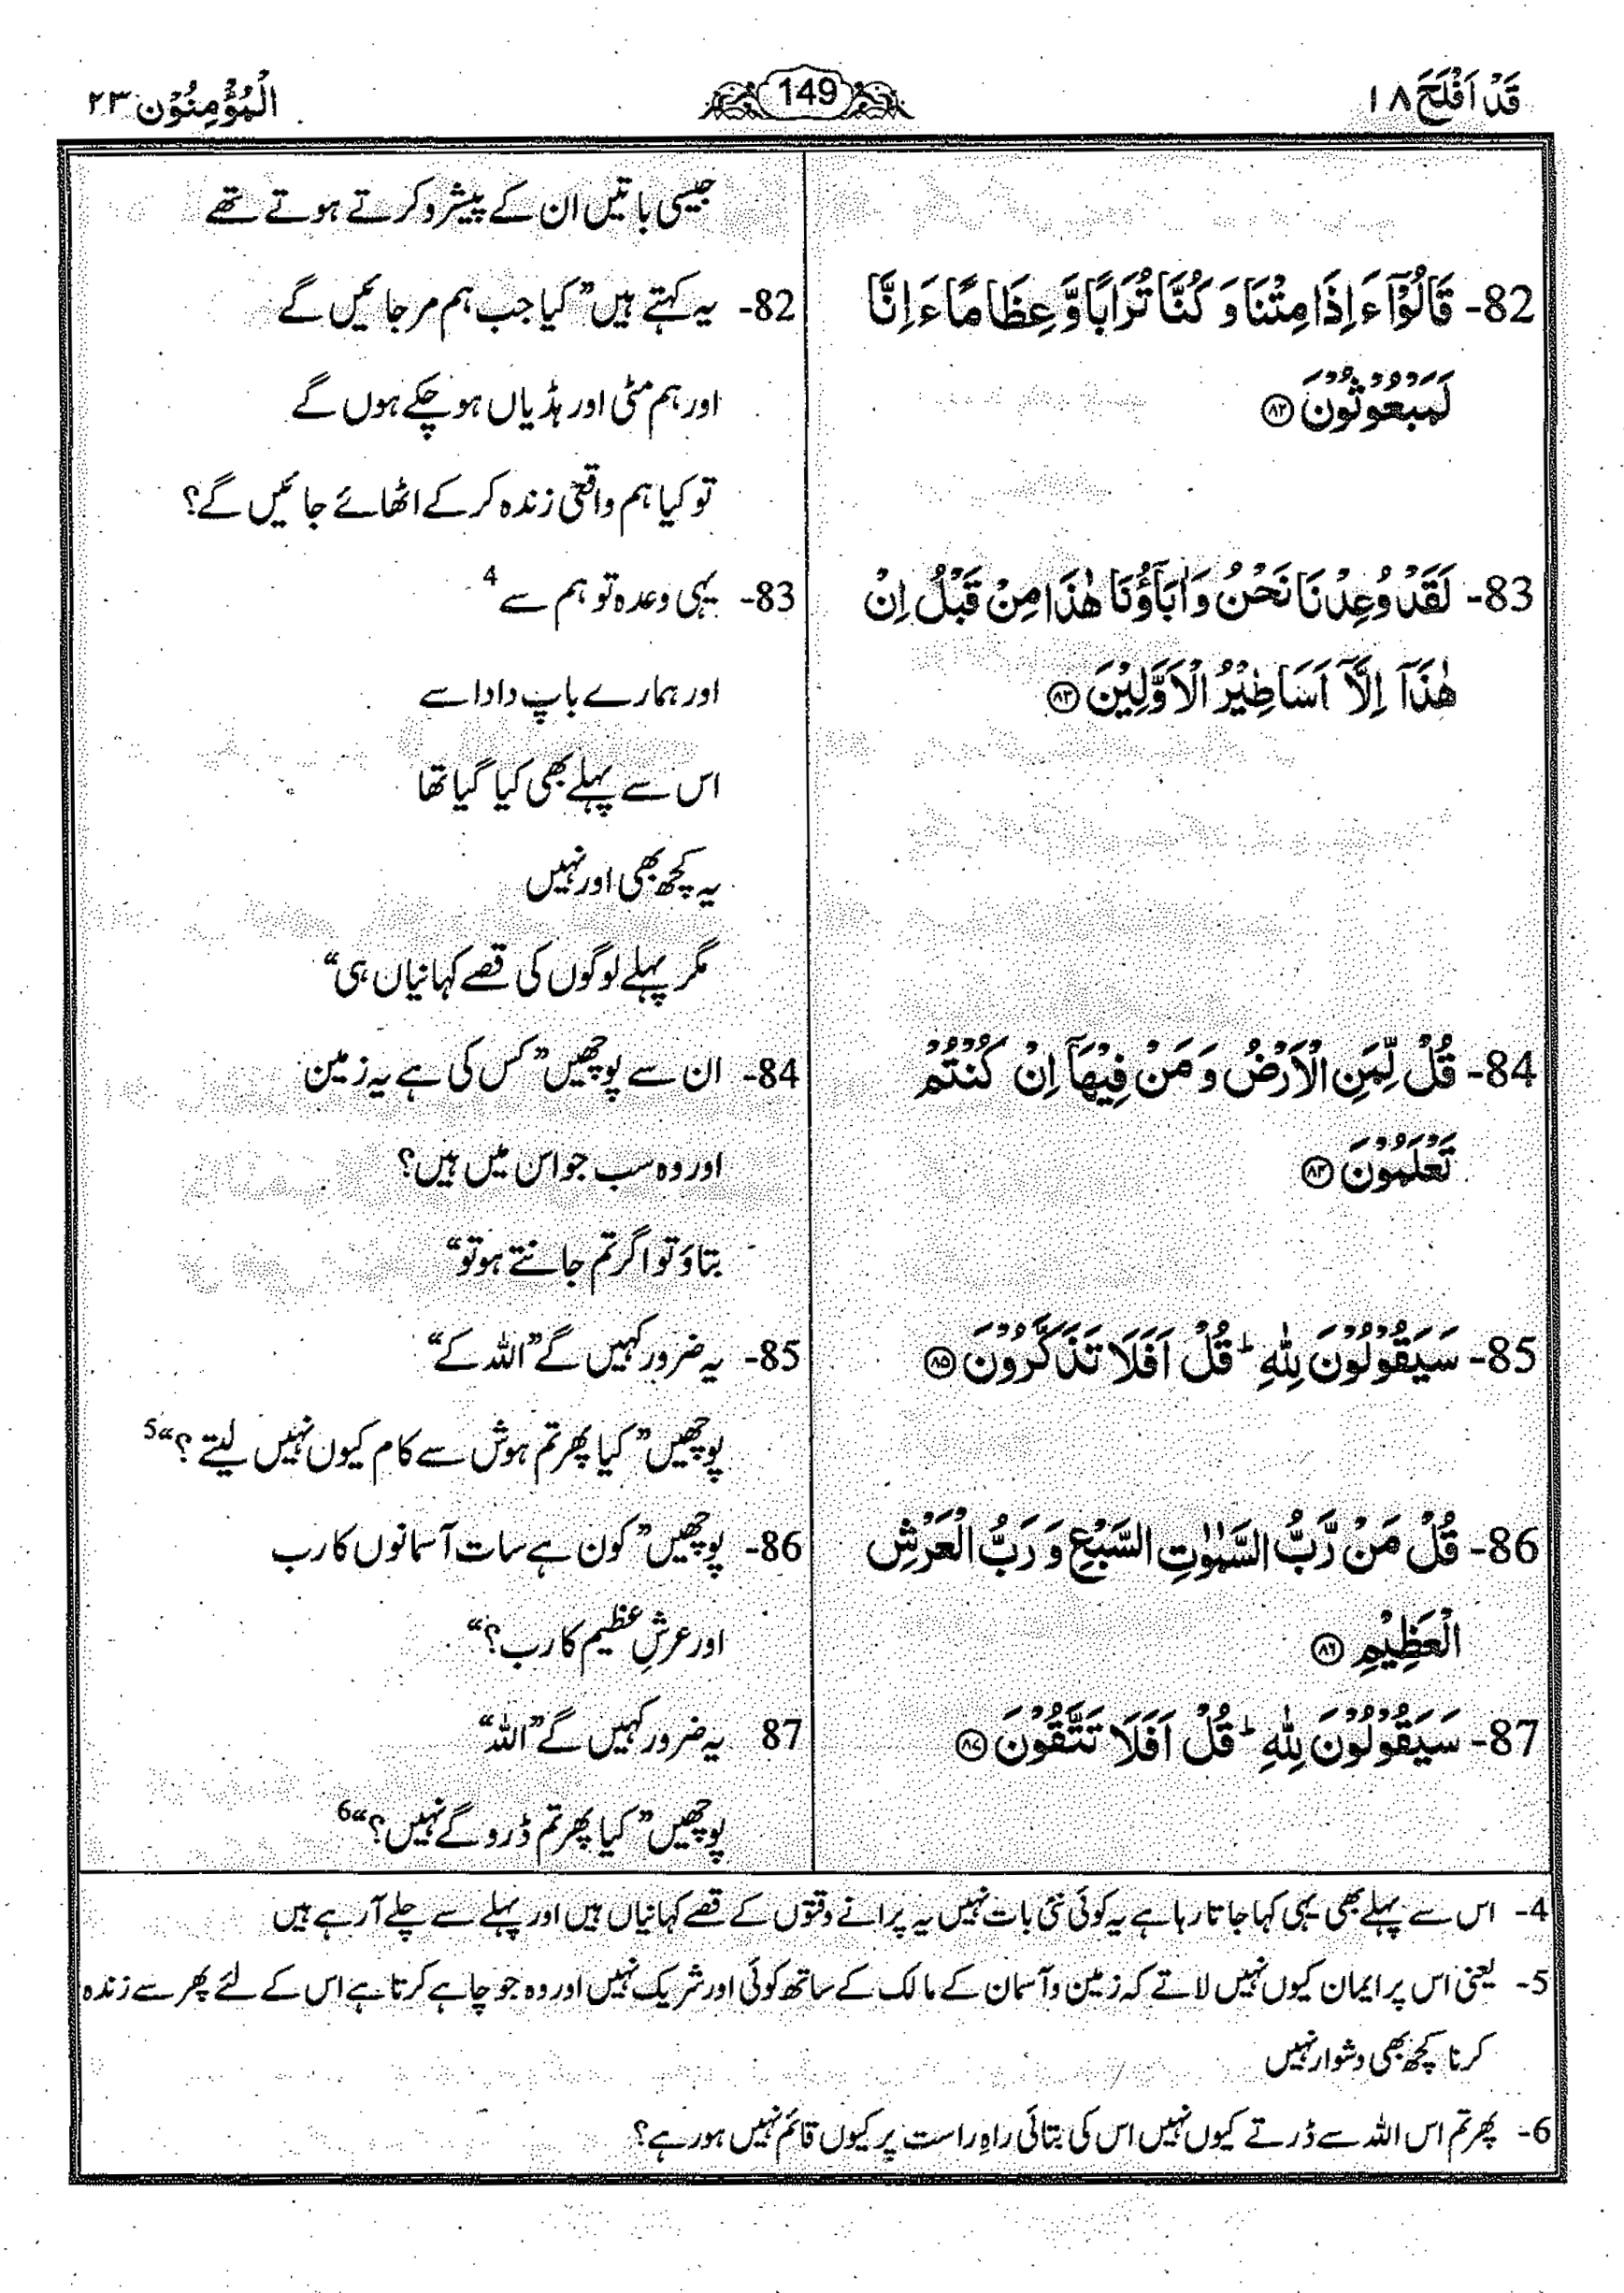 قَدْ اَفْلَحَ ۱۸
149
الْمُؤْمِنُوْن ۲۳
جیسی باتیں ان کے پیشرو کرتے ہوتے تھے
82- قَالُوْٓا ءَاِذَا مِتْنَا وَ كُنَّا تُرَابًا وَّ عِظَامًا ءَاِنَّا
لَمَبْعُوْثُوْنَ ﴿۸۲﴾
82- یہ کہتے ہیں ”کیا جب ہم مر جائیں گے
اور ہم مٹی اور ہڈیاں ہو چکے ہوں گے
تو کیا ہم واقعی زندہ کر کے اٹھائے جائیں گے؟
83- لَقَدْ وُعِدْنَا نَحْنُ وَ اٰبَآؤُنَا هٰذَا مِنْ قَبْلُ اِنْ
هٰذَآ اِلَّآ اَسَاطِيْرُ الْاَوَّلِيْنَ ﴿۸۳﴾
83- یہی وعدہ تو ہم سے 4
اور ہمارے باپ دادا سے
اس سے پہلے بھی کیا گیا تھا
یہ کچھ بھی اور نہیں
مگر پہلے لوگوں کی قصے کہانیاں ہی“
84- قُلْ لِّمَنِ الْاَرْضُ وَ مَنْ فِيْهَآ اِنْ كُنْتُمْ
تَعْلَمُوْنَ ﴿۸۴﴾
84- ان سے پوچھیں ”کس کی ہے یہ زمین
اور وہ سب جو اس میں ہیں؟
بتاؤ تو اگر تم جانتے ہو تو“
85- سَيَقُوْلُوْنَ لِلّٰهِ ؕ قُلْ اَفَلَا تَذَكَّرُوْنَ ﴿۸۵﴾
85- یہ ضرور کہیں گے ”اللہ کے“
پوچھیں ”کیا پھر تم ہوش سے کام کیوں نہیں لیتے؟“ 5
86- قُلْ مَنْ رَّبُّ السَّمٰوٰتِ السَّبْعِ وَ رَبُّ الْعَرْشِ
الْعَظِيْمِ ﴿۸۶﴾
86- پوچھیں ”کون ہے سات آسمانوں کا رب
اور عرشِ عظیم کا رب؟“
87- سَيَقُوْلُوْنَ لِلّٰهِ ؕ قُلْ اَفَلَا تَتَّقُوْنَ ﴿۸۷﴾
87 یہ ضرور کہیں گے ”اللہ“
پوچھیں ”کیا پھر تم ڈرو گے نہیں؟“ 6
4- اس سے پہلے بھی یہی کہا جاتا رہا ہے یہ کوئی نئی بات نہیں یہ پرانے وقتوں کے قصے کہانیاں ہیں اور پہلے سے چلے آ رہے ہیں
5- یعنی اس پر ایمان کیوں نہیں لاتے کہ زمین و آسمان کے مالک کے ساتھ کوئی اور شریک نہیں اور وہ جو چاہے کرتا ہے اس کے لئے پھر سے زندہ
کرنا کچھ بھی دشوار نہیں
6- پھر تم اس اللہ سے ڈرتے کیوں نہیں اس کی بتائی راہِ راست پر کیوں قائم نہیں ہو رہے؟